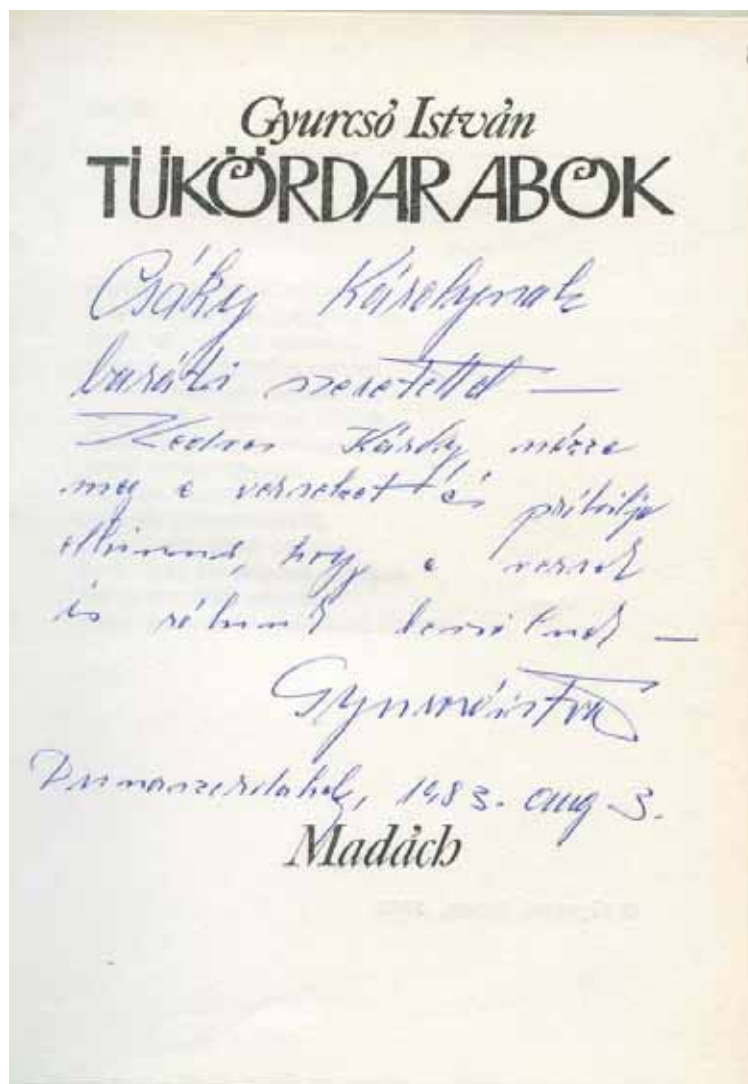 Gyurcsó István
TÜKÖRDARABOK
Csáky Károlynak
baráti szeretettel —
Kedves Károly nézze
meg e verseket és próbálja
hogy e versek
is rólunk beszélnek —
Gyurcsó István
Dunaszerdahely, 1983. aug 3.
Madách